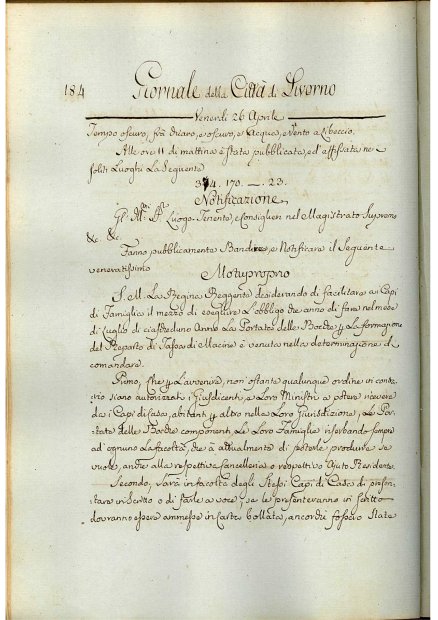 184 Giornale della Città di Livorno
Venerdì 26 Aprile
Tempo oscuro, fra chiaro, e oscuro, e Acqua, e Vento a Libeccio.
Alle ore 11 di mattina è stata pubblicata, ed affissata ne
soliti Luoghi La Seguente
374. 170. — . 23.
Notificazione
Gl' Ill.mi SS.ri Luogo Tenente, e Consiglieri nel Magistrato Supremo
&c. &c.
Fanno pubblicamente Bandire, e Notificare il Seguente
veneratissimo
Motuproprio
S. M. La Regina Reggente desiderando di facilitare ai Capi
di Famiglia il mezzo di eseguire L'obbligo che anno di fare nel mese
di Luglio di ciascheduno Anno La Portata delle Bocche p La formazione
del Reparto di Tassa di Macine è venuta nella determinazione di
comandare.
Primo, Che p L'avvenire, non ostante qualunque ordine in contra-
rio siano autorizzati i Giusdicenti, e Loro Ministri a potere ricevere
da i Capi di Casa, abitanti p altro nella Loro Giurisdizione, Le Por-
tate delle Bocche componenti Le Loro Famiglie riserbando sempre
ad ognuno La facoltà, che à attualmente di poterle produrre se
vuole, anche alla respettiva Cancelleria o respettivo Ajuto Residente.
Secondo, Sarà in facoltà degli Stessi Capi di Casa di presen-
tare in Scritto o di farle a voce, se le presenteranno in scritto
dovranno essere ammesse in Carta bollata, ancorchè fossero State